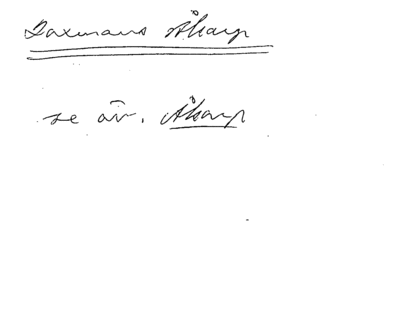 Laxmans Åkarp
se äv. Åkarp